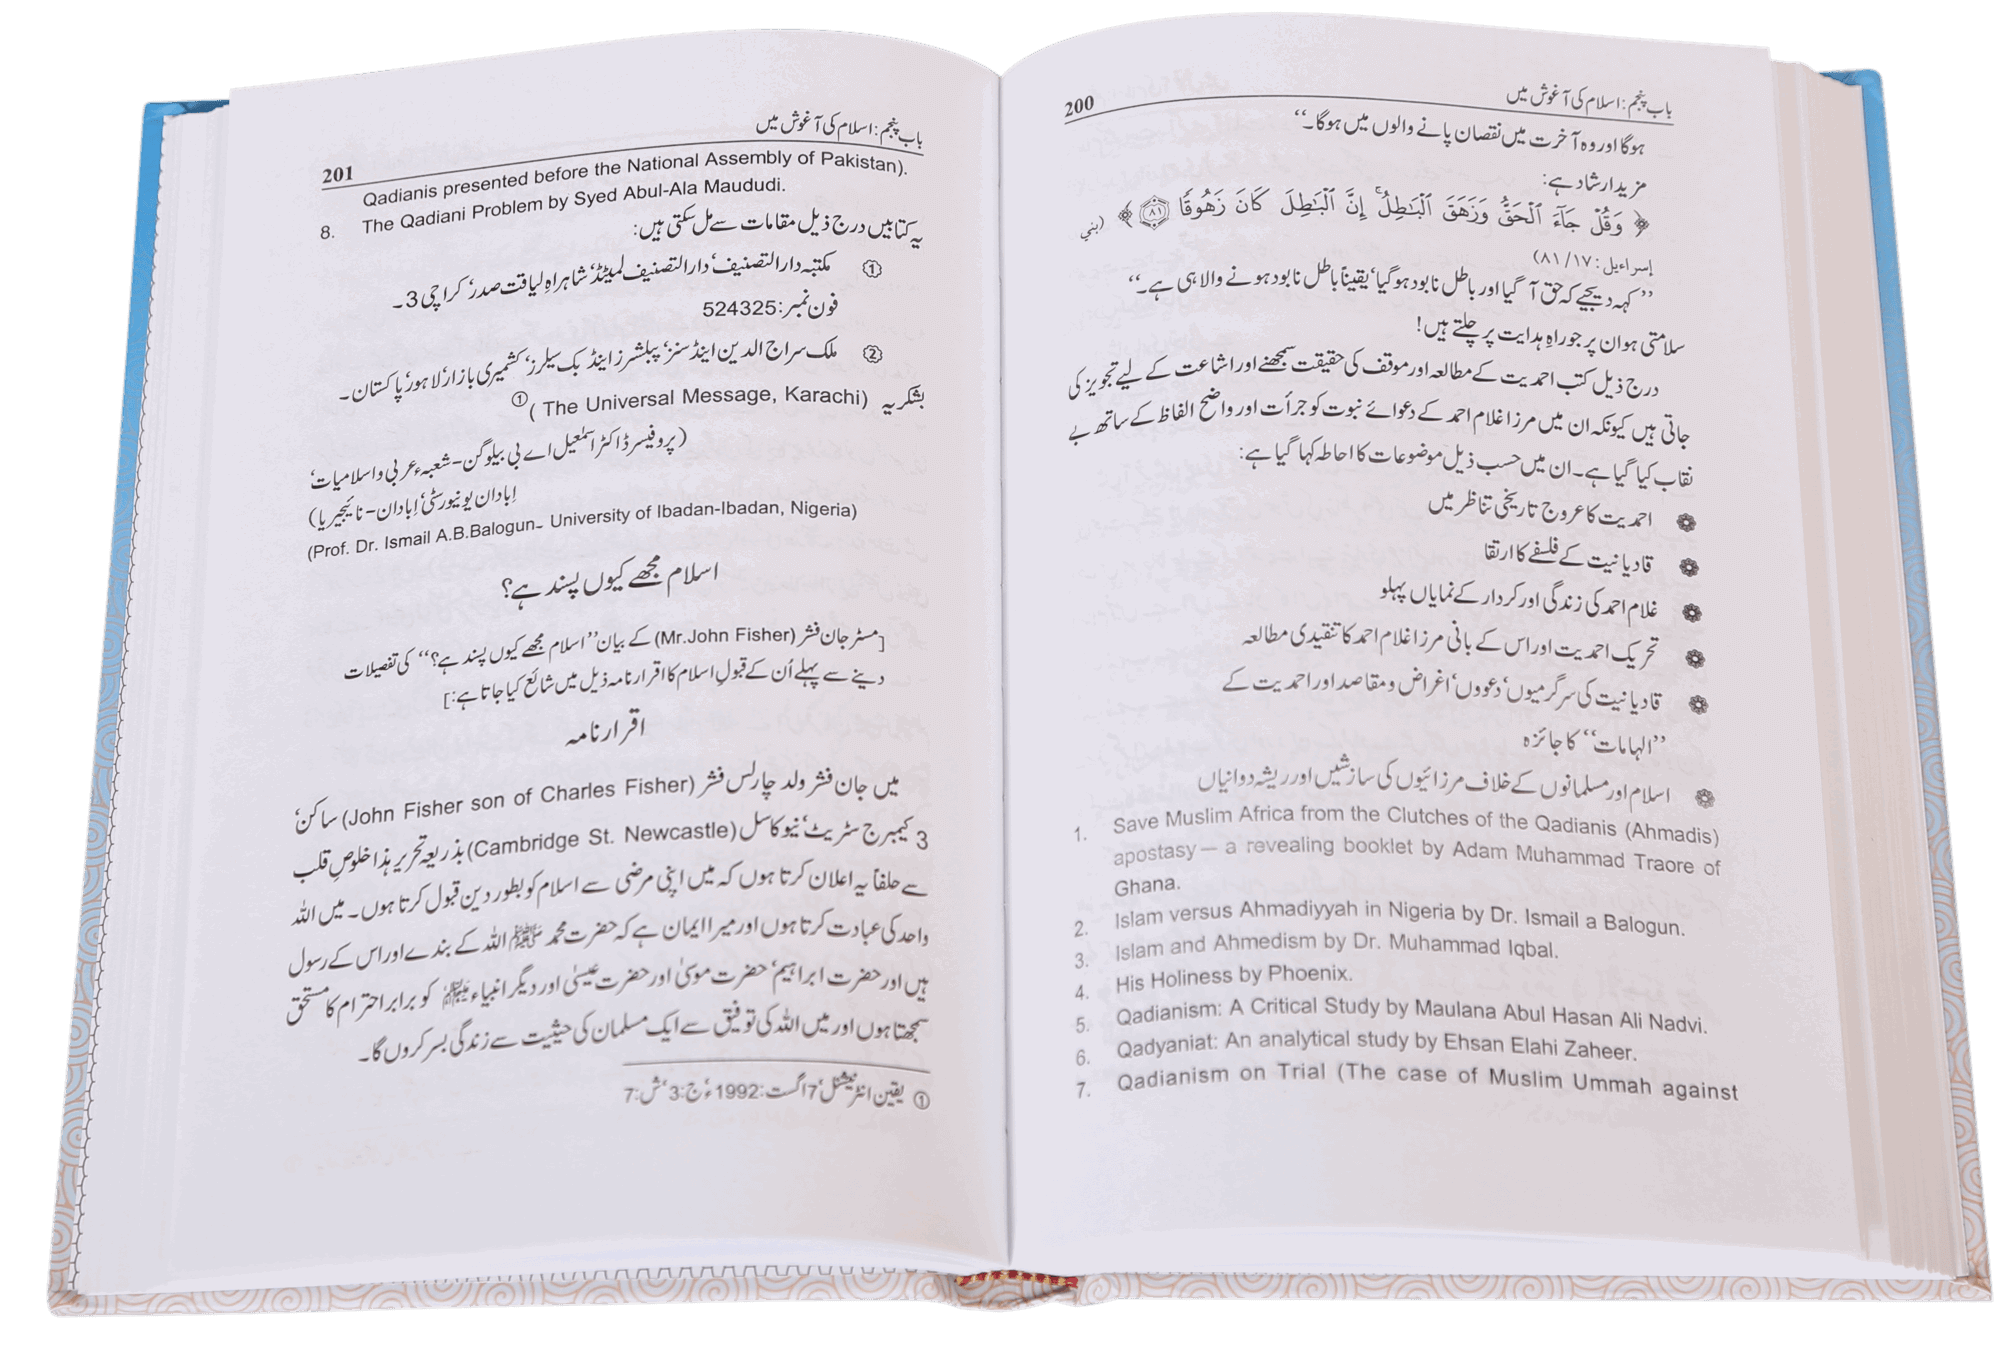 باب پنجم: اسلام کی آغوش میں 200
ہوگا اور وہ آخرت میں نقصان پانے والوں میں ہوگا۔‘‘
مزید ارشاد ہے:
﴿ وَقُلْ جَآءَ ٱلْحَقُّ وَزَهَقَ ٱلْبَٰطِلُ ۚ إِنَّ ٱلْبَٰطِلَ كَانَ زَهُوقًا ۝٨١ ﴾ (بني
إسراءيل: ٨١/١٧)
’’کہہ دیجیے کہ حق آ گیا اور باطل نابود ہوگیا‘ یقیناً باطل نابود ہونے والا ہی ہے۔‘‘
سلامتی ہو ان پر جو راہِ ہدایت پر چلتے ہیں!
درج ذیل کتب احمدیت کے مطالعہ اور موقف کی حقیقت سمجھنے اور اشاعت کے لیے تجویز کی
جاتی ہیں کیونکہ ان میں مرزا غلام احمد کے دعوائے نبوت کو جرأت اور واضح الفاظ کے ساتھ بے
نقاب کیا گیا ہے۔ ان میں حسب ذیل موضوعات کا احاطہ کہا گیا ہے:
احمدیت کا عروج تاریخی تناظر میں
قادیانیت کے فلسفے کا ارتقا
غلام احمد کی زندگی اور کردار کے نمایاں پہلو
تحریک احمدیت اور اس کے بانی مرزا غلام احمد کا تنقیدی مطالعہ
قادیانیت کی سرگرمیوں‘ دعووں‘ اغراض و مقاصد اور احمدیت کے
’’الہامات‘‘ کا جائزہ
اسلام اور مسلمانوں کے خلاف مرزائیوں کی سازشیں اور ریشہ دوانیاں
1. Save Muslim Africa from the Clutches of the Qadianis (Ahmadis)
apostasy— a revealing booklet by Adam Muhammad Traore of
Ghana.
2. Islam versus Ahmadiyyah in Nigeria by Dr. Ismail a Balogun.
3. Islam and Ahmedism by Dr. Muhammad Iqbal.
4. His Holiness by Phoenix.
5. Qadianism: A Critical Study by Maulana Abul Hasan Ali Nadvi.
6. Qadyaniat: An analytical study by Ehsan Elahi Zaheer.
7. Qadianism on Trial (The case of Muslim Ummah against
باب پنجم: اسلام کی آغوش میں 201
Qadianis presented before the National Assembly of Pakistan).
8. The Qadiani Problem by Syed Abul-Ala Maududi.
یہ کتابیں درج ذیل مقامات سے مل سکتی ہیں:
① مکتبہ دارالتصنیف‘ دارالتصنیف لمیٹڈ‘ شاہراہِ لیاقت صدر‘ کراچی 3۔
فون نمبر: 524325
② ملک سراج الدین اینڈ سنز‘ پبلشرز اینڈ بک سیلرز‘ کشمیری بازار‘ لاہور‘ پاکستان۔
بشکریہ (The Universal Message, Karachi) ①
(پروفیسر ڈاکٹر اسمٰعیل اے بی بیلوگن- شعبہء عربی و اسلامیات‘
اِبادان یونیورسٹی‘ اِبادان- نائیجیریا)
(Prof. Dr. Ismail A.B.Balogun- University of Ibadan-Ibadan, Nigeria)
اسلام مجھے کیوں پسند ہے؟
[مسٹر جان فشر (Mr.John Fisher) کے بیان ’’اسلام مجھے کیوں پسند ہے؟‘‘ کی تفصیلات
دینے سے پہلے اُن کے قبولِ اسلام کا اقرار نامہ ذیل میں شائع کیا جاتا ہے:]
اقرار نامہ
میں جان فشر ولد چارلس فشر (John Fisher son of Charles Fisher) ساکن‘
3 کیمبرج سٹریٹ‘ نیو کاسل (Cambridge St. Newcastle) بذریعہ تحریر ہذا خلوصِ قلب
سے حلفاً یہ اعلان کرتا ہوں کہ میں اپنی مرضی سے اسلام کو بطور دین قبول کرتا ہوں۔ میں اللہ
واحد کی عبادت کرتا ہوں اور میرا ایمان ہے کہ حضرت محمد ﷺ اللہ کے بندے اور اس کے رسول
ہیں اور حضرت ابراہیم‘ حضرت موسیٰ اور حضرت عیسیٰ اور دیگر انبیاء کو برابر احترام کا مستحق
سمجھتا ہوں اور میں اللہ کی توفیق سے ایک مسلمان کی حیثیت سے زندگی بسر کروں گا۔
① یقین انٹرنیشنل‘ 7 اگست: 1992ء‘ ج: 3‘ ش: 7